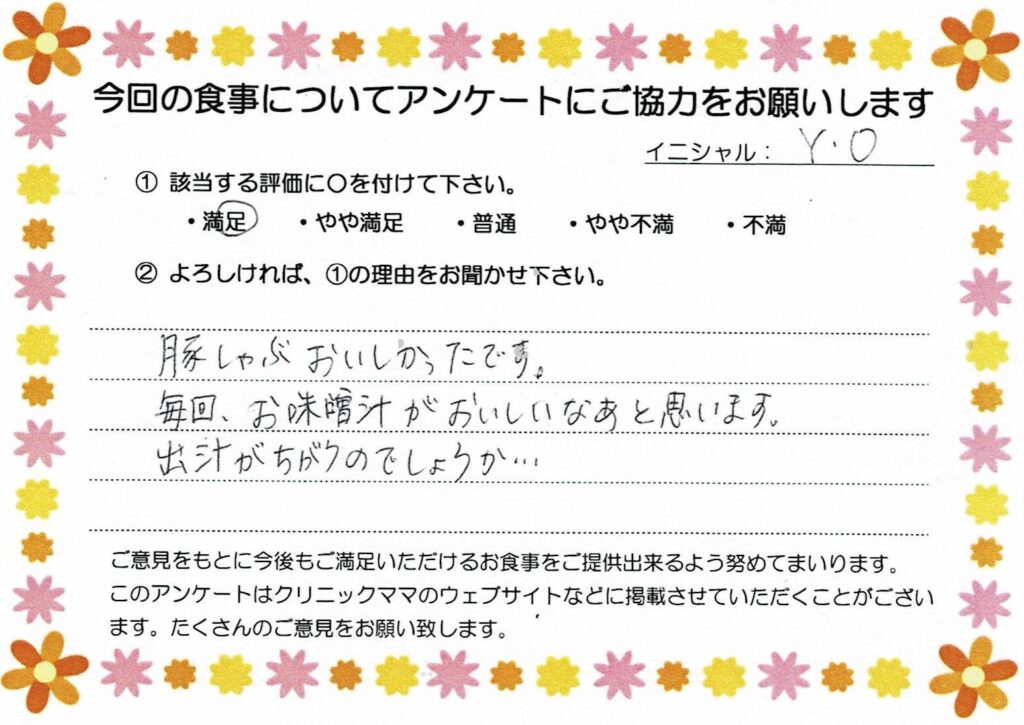 今回の食事についてアンケートにご協力をお願いします
イニシャル： Y.O
① 該当する評価に〇を付けて下さい。
・満足 ・やや満足 ・普通 ・やや不満 ・不満
② よろしければ、①の理由をお聞かせ下さい。
豚しゃぶおいしかったです。
毎回、お味噌汁がおいしいなあと思います。
出汁がちがうのでしょうか…
ご意見をもとに今後もご満足いただけるお食事をご提供出来るよう努めてまいります。
このアンケートはクリニックママのウェブサイトなどに掲載させていただくことがござい
ます。たくさんのご意見をお願い致します。